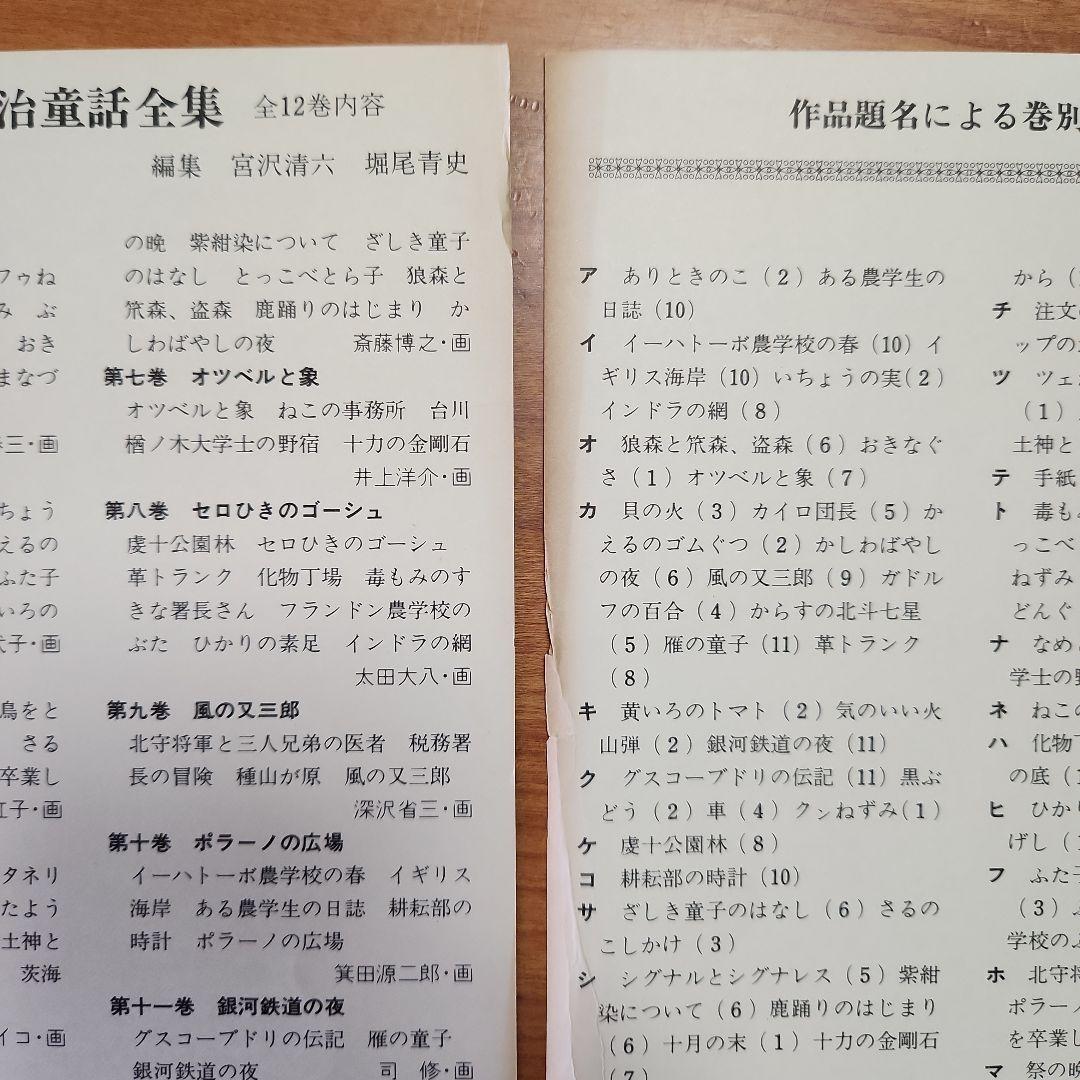 治童話全集 全12巻内容
編集 宮沢清六 堀尾青史
フゥね
み ぶ
おき
まなづ
三・画
ちょう
えるの
ふた子
いろの
子・画
鳥をと
さる
卒業し
子・画
タネリ
たよう
土神と
茨海
イコ・画
の晩 紫紺染について ざしき童子
のはなし とっこべとら子 狼森と
笊森、盗森 鹿踊りのはじまり か
しわばやしの夜 斎藤博之・画
第七巻 オツベルと象
オツベルと象 ねこの事務所 台川
楢ノ木大学士の野宿 十力の金剛石
井上洋介・画
第八巻 セロひきのゴーシュ
虔十公園林 セロひきのゴーシュ
革トランク 化物丁場 毒もみのす
きな署長さん フランドン農学校の
ぶた ひかりの素足 インドラの網
太田大八・画
第九巻 風の又三郎
北守将軍と三人兄弟の医者 税務署
長の冒険 種山が原 風の又三郎
深沢省三・画
第十巻 ポラーノの広場
イーハトーボ農学校の春 イギリス
海岸 ある農学生の日誌 耕耘部の
時計 ポラーノの広場
箕田源二郎・画
第十一巻 銀河鉄道の夜
グスコーブドリの伝記 雁の童子
銀河鉄道の夜 司 修・画
作品題名による巻別
ア ありときのこ(2)ある農学生の
日誌(10)
イ イーハトーボ農学校の春(10)イ
ギリス海岸(10)いちょうの実(2)
インドラの網(8)
オ 狼森と笊森、盗森(6)おきなぐ
さ(1)オツベルと象(7)
カ 貝の火(3)カイロ団長(5)か
えるのゴムぐつ(2)かしわばやし
の夜(6)風の又三郎(9)ガドル
フの百合(4)からすの北斗七星
(5)雁の童子(11)革トランク
(8)
キ 黄いろのトマト(2)気のいい火
山弾(2)銀河鉄道の夜(11)
ク グスコーブドリの伝記(11)黒ぶ
どう(2)車(4)クンねずみ(1)
ケ 虔十公園林(8)
コ 耕耘部の時計(10)
サ ざしき童子のはなし(6)さるの
こしかけ(3)
シ シグナルとシグナレス(5)紫紺
染について(6)鹿踊りのはじまり
(6)十月の末(1)十力の金剛石
(7)
から(
チ 注文の
ップの
ツ ツェ
(1)
土神と
テ 手紙
ト 毒も
っこべ
ねずみ
どんぐ
ナ なめ
学士の野
ネ ねこの
ハ 化物丁
の底(1
ヒ ひかり
げし(
フ ふた子
(3)
学校の
ホ 北守将
ポラーノ
を卒業し
マ 祭の晩